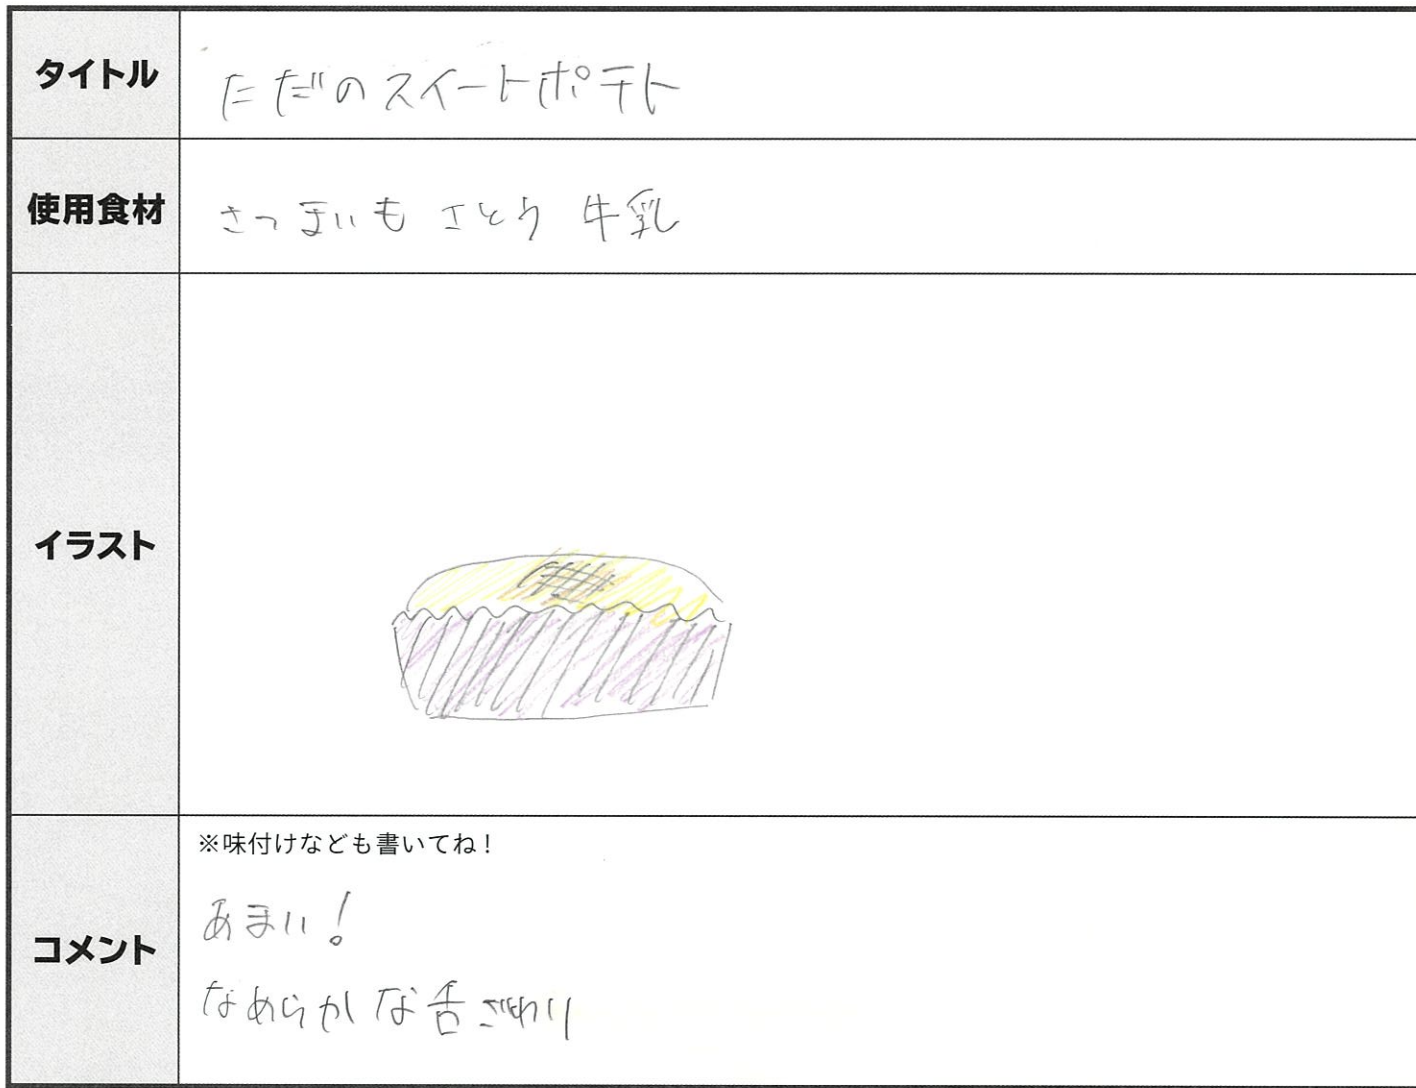 タイトル
ただのスイートポテト
使用食材
さつまいも さとう 牛乳
イラスト
コメント
※味付けなども書いてね！
あまい！
なめらかな舌ざわり